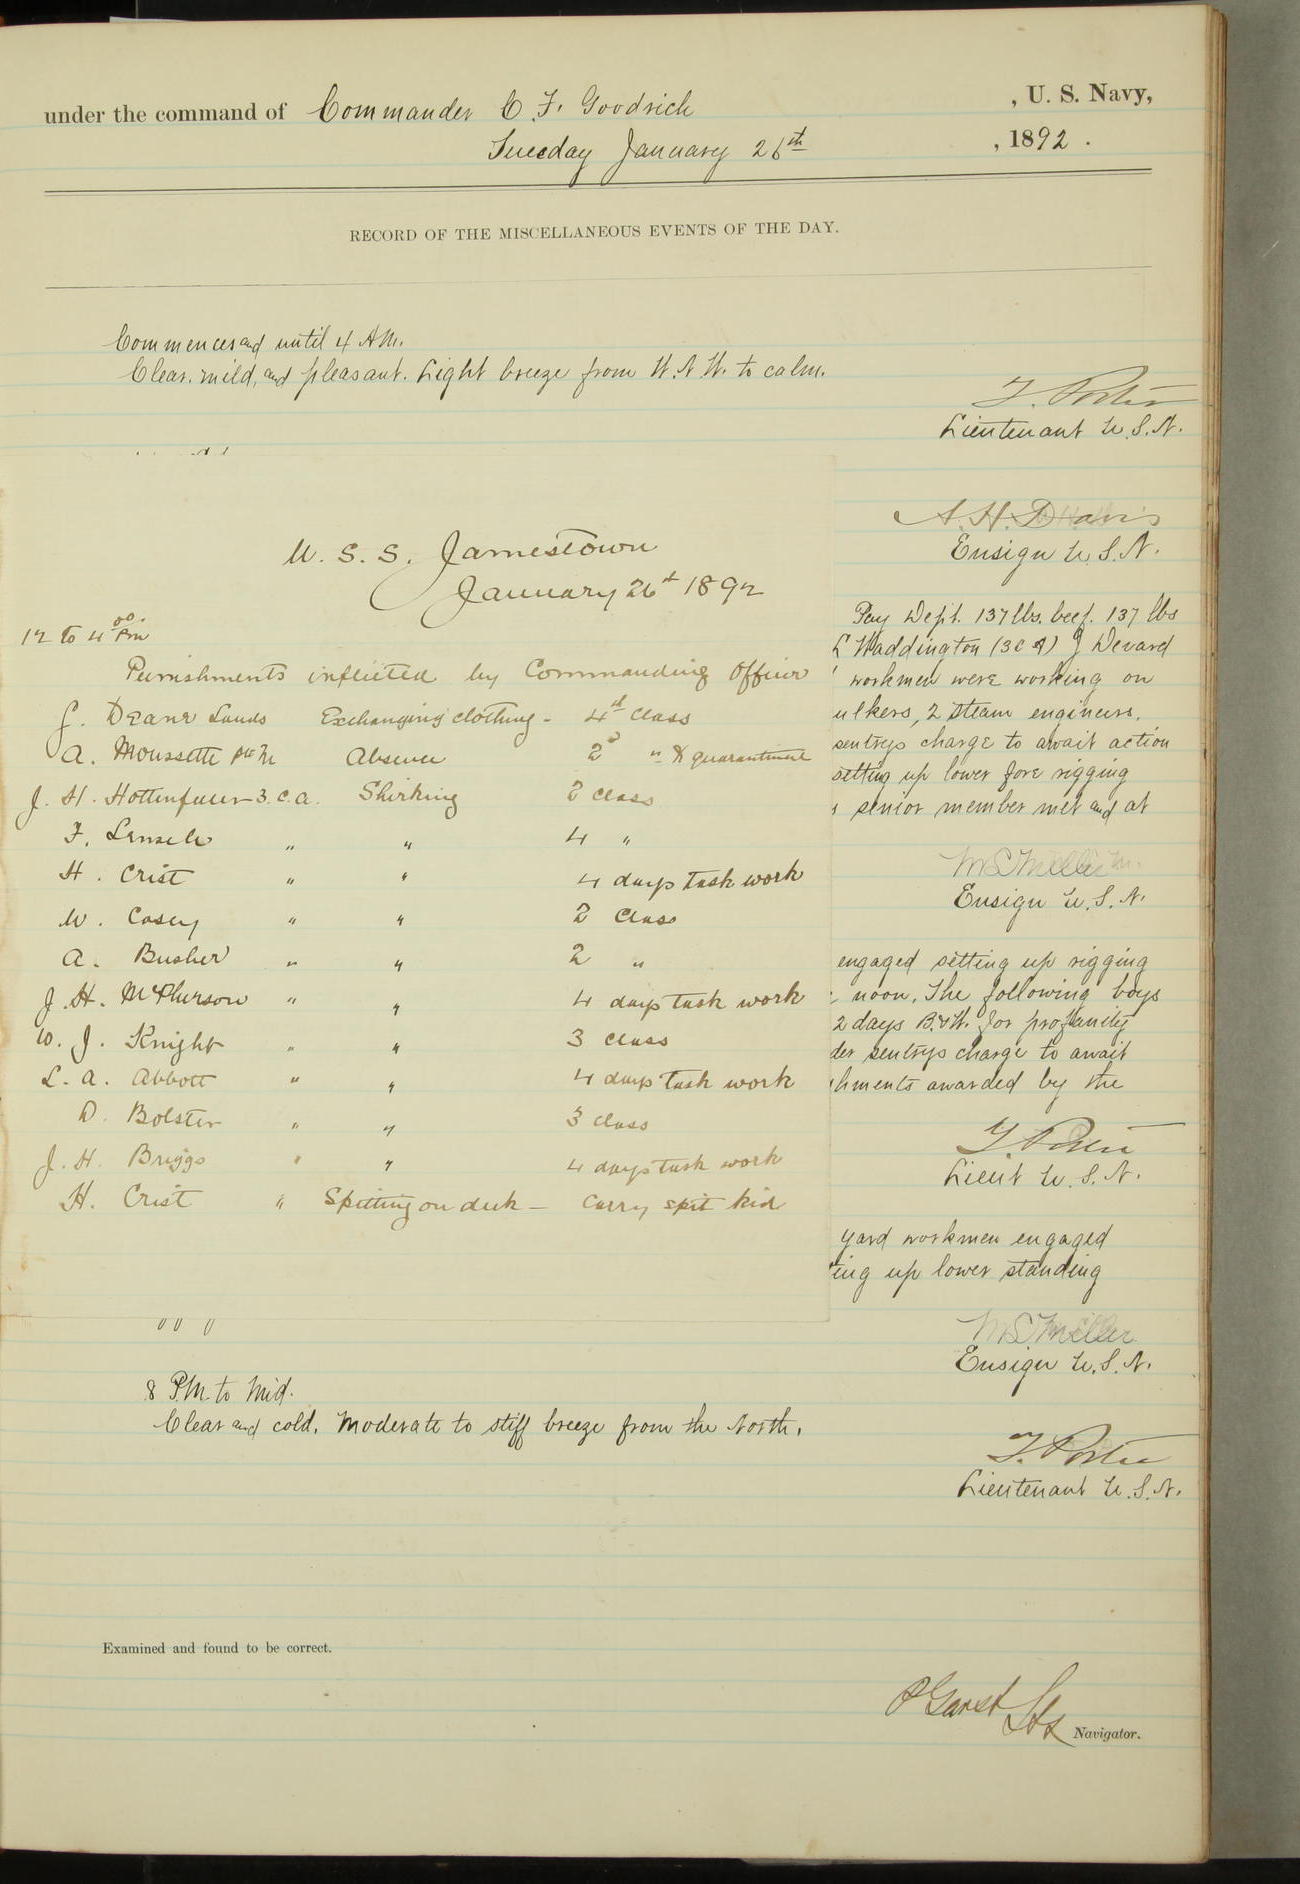 under the command of Commander C. F. Goodrich , U. S. Navy,
Tuesday January 26th , 1892 .
RECORD OF THE MISCELLANEOUS EVENTS OF THE DAY.
Commences and until 4 AM.
Clear, mild, and pleasant. Light breeze from W.N.W. to calm.
T. Porter
Lieutenant U.S.N.
A. H. Davis
Ensign U.S.N.
U. S. S. Jamestown
January 26th 1892
12 to 4 00 Pm
Punishments inflicted by Commanding Officer
J. Deane Lands Exchanging clothing - 4th Class
A. Moussette Absence 2d " & quarantine
J. H. Hottenfuser 3.C.a. Shirking 2 class
F. " " 4 "
H. Crist " " 4 days task work
W. Casey " " 2 Class
A. Busher " " 2 "
J. H. McPherson " " 4 days task work
W. J. Knight " " 3 class
L. A. Abbott " " 4 days task work
D. Bolster " " 3 class
J. H. Briggs " " 4 days task work
H. Crist " Spitting on deck - Carry spit kid
Pay Dept. 137 lbs. beef. 137 lbs
Waddington (3C A) J Devard
workmen were working on
ulkers, 2 steam engineers.
sentrys charge to await action
setting up lower fore rigging
senior member met and at
M. S. Miller
Ensign U.S.N.
engaged setting up rigging
noon. The following boys
2 days B.&W. for profanity
der sentrys charge to await
hments awarded by the
T. Porter
Lieut U.S.N.
yard workmen engaged
ing up lower standing
M S Miller
Ensign U.S.N.
8 P.M. to Mid.
Clear and cold. Moderate to stiff breeze from the North.
T. Porter
Lieutenant U.S.N.
Examined and found to be correct.
P Garst
Navigator.